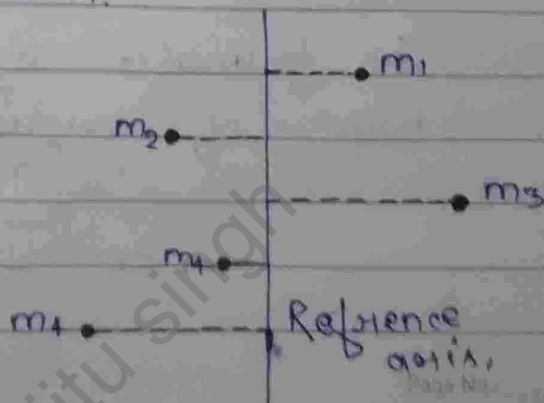 m1
m2
m3
m4
m4
Refrence
axis.
Page No.
jitu singh